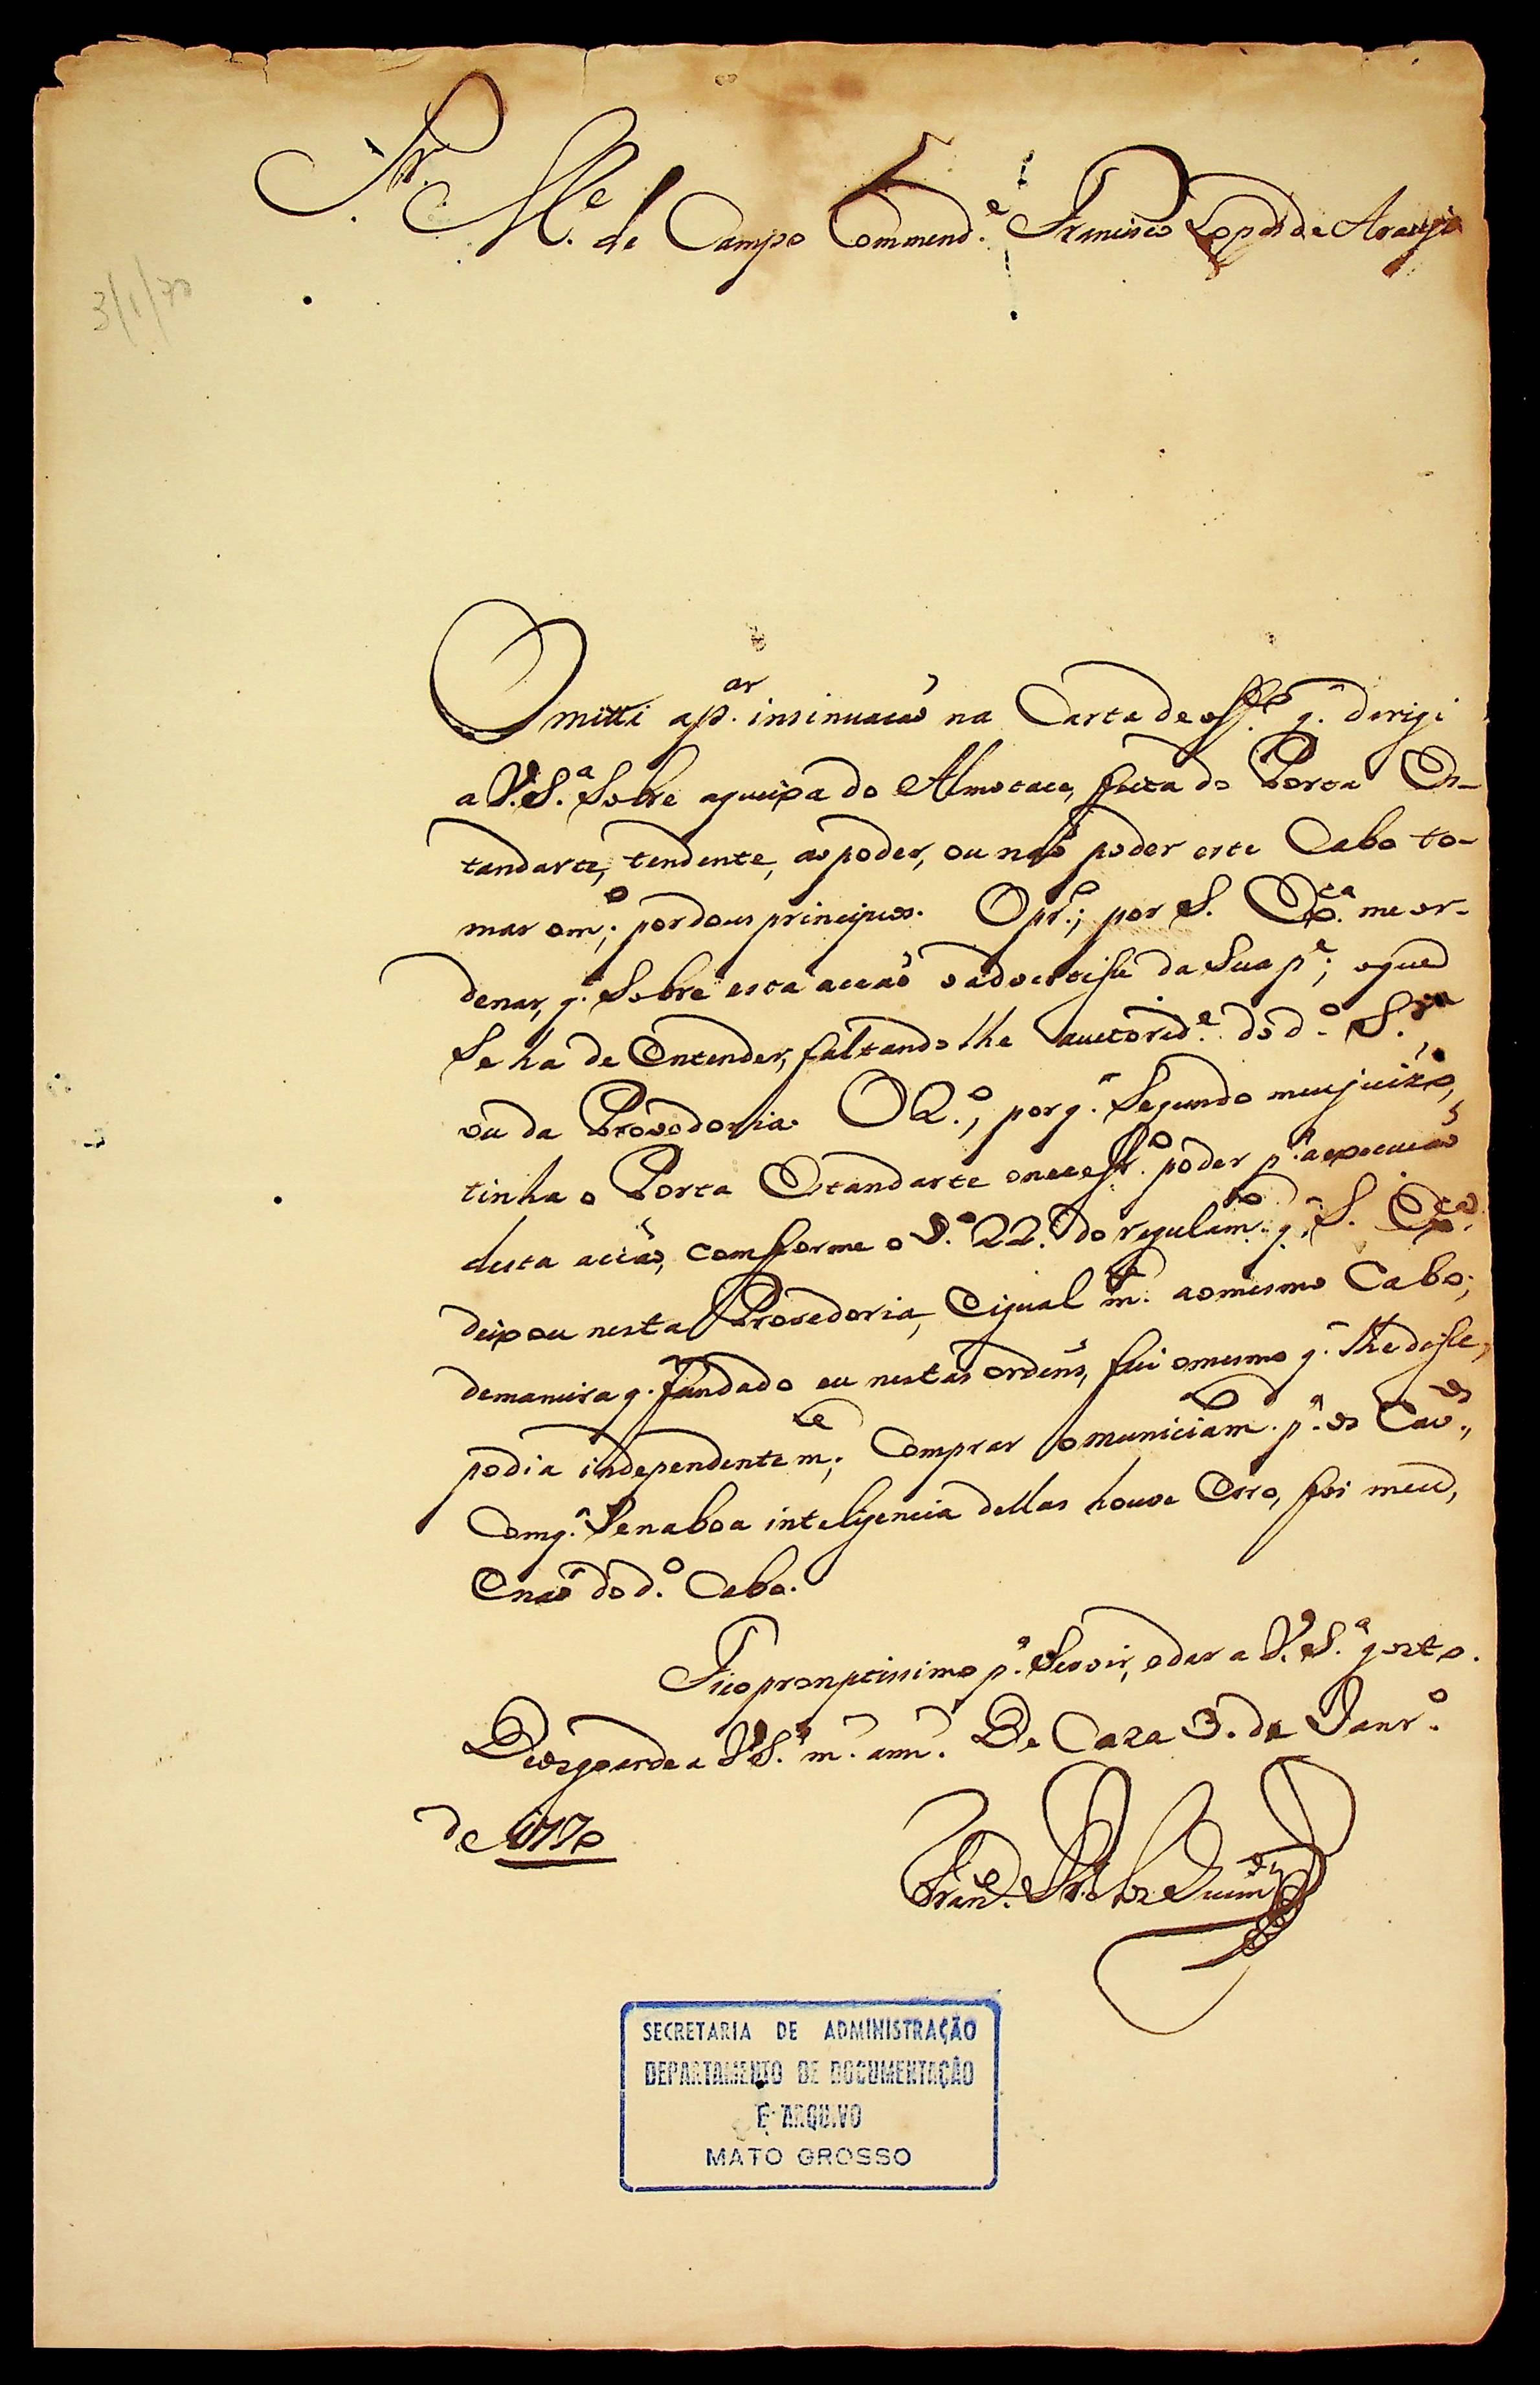 Sr. M.e de Campo Commend.e Francisco Lopes de Araujo
3/1/70
Omitti a p.ar insinuacaõ na Carta de off.o q. derigi
a V.S.a Sobre aqueixa do Almotace, feita do Porta Es-
tandarte, tendente, ao poder, ou naõ poder este Cabo to-
mar o m.o; por dous principios. O pr.o; por S. Ex.ca me or-
denar, q. Sobre esta accaõ o advertisse da Sua p.e; o que
Se ha de Entender, faltando lhe auctorid.e do d.o S.r
ou da Provedoria. O 2.o, porq. Segundo meu juizo,
tinha o Porta Estandarte o necessr.o poder p.a a execucaõ
desta accaõ, comforme o §.o 22. do regulam.to q. S. Ex.ca
deixou nesta Provedoria, Eigual m.te ao mesmo Cabo;
demaneira q. fundado eu nestas ordens, fui o mesmo q. lhe disse,
podia independente m.te; Comprar o municiam.to p.a os Cav.os,
Com q. Se na boa inteligencia dellas houve Erro, foi meu,
Enaõ do d.o Cabo.
Fico promptissimo p.a Servir, e dar a V.S.a gosto.
Deos guarde a V.S.a m. ann. De Caza 3. de Janr.o
de 1770
Fran.co
SECRETARIA DE ADMINISTRAÇÃO
DEPARTAMENTO DE DOCUMENTAÇÃO
E ARQUIVO
MATO GROSSO